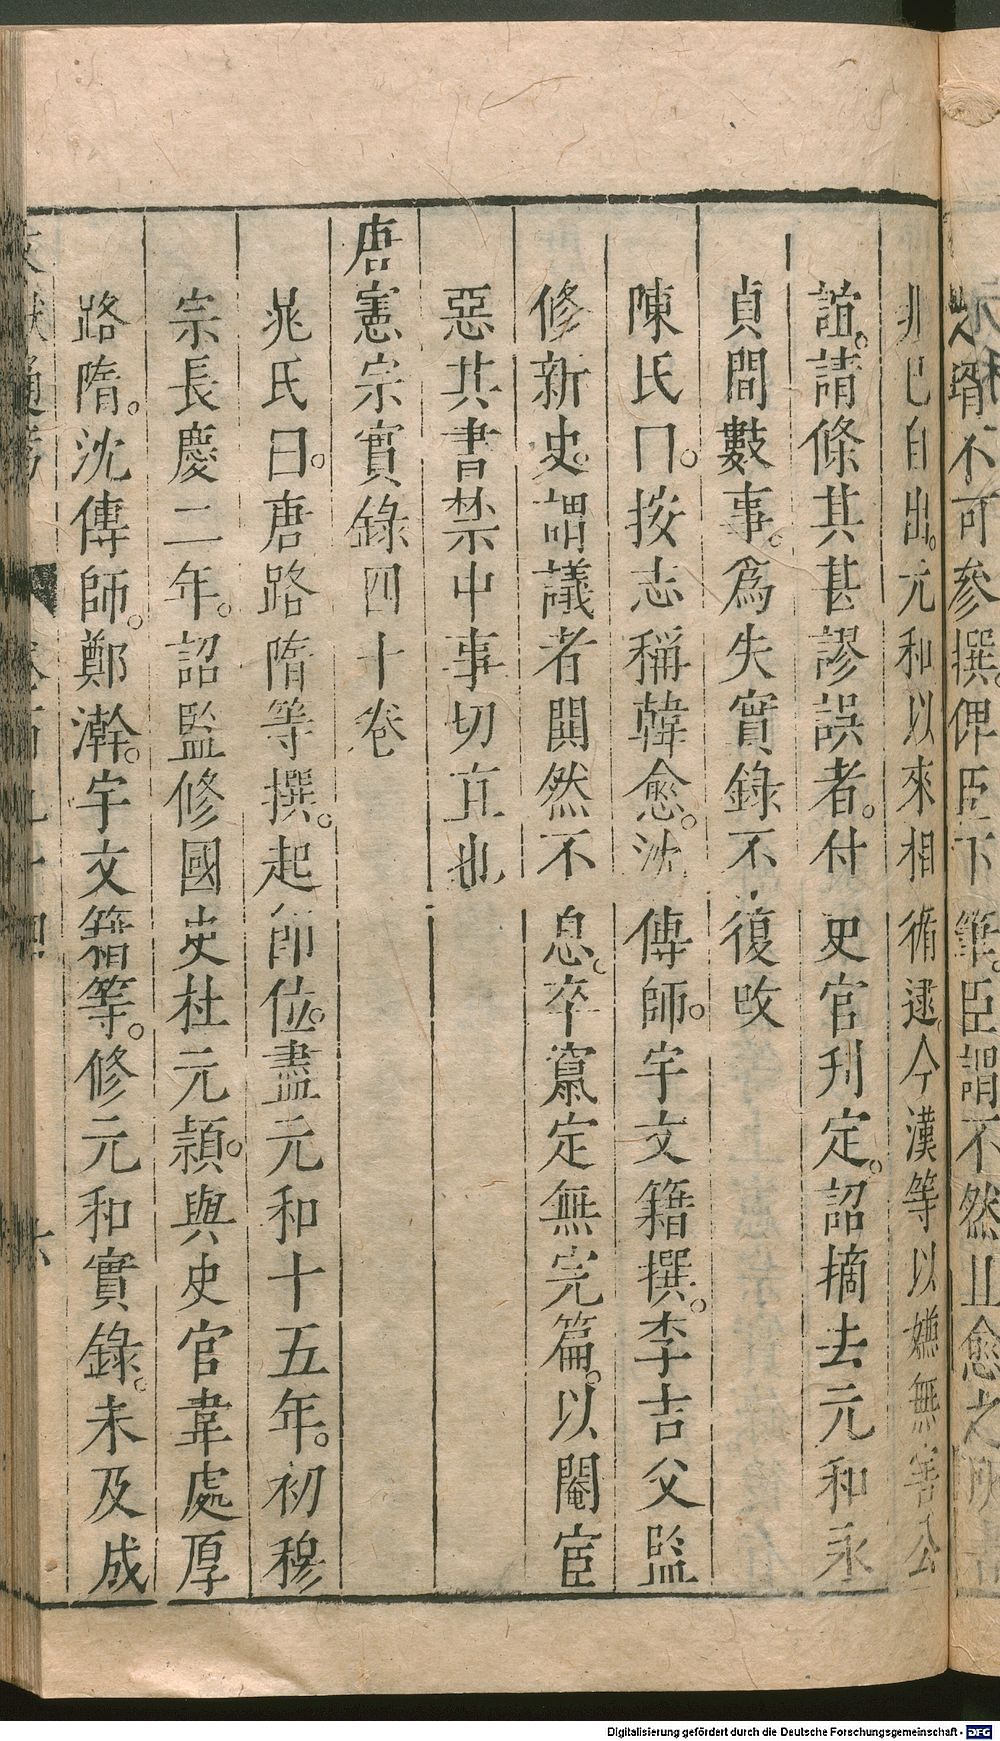 壻不可參撰俾臣下筆臣謂不然且愈之所
非已自出元和以來相循逮今漢等以嫌無害公
誼請條其甚謬誤者付史官刋定詔摘去元和永
貞間數事爲失實錄不復改
陳氏曰按志稱韓愈沈傳師宇文籍撰李吉父監
修新史謂議者閧然不息卒竄定無完篇以閹宦
惡其書禁中事切直也
唐憲宗實錄四十卷
晁氏曰唐路隋等撰起即位盡元和十五年初穆
宗長慶二年詔監修國史杜元頴與史官韋處厚
路隋沈傳師鄭澣宇文籍等修元和實錄未及成
文獻通考 卷百九十四 六
Digitalisierung gefördert durch die Deutsche Forschungsgemeinschaft - DFG